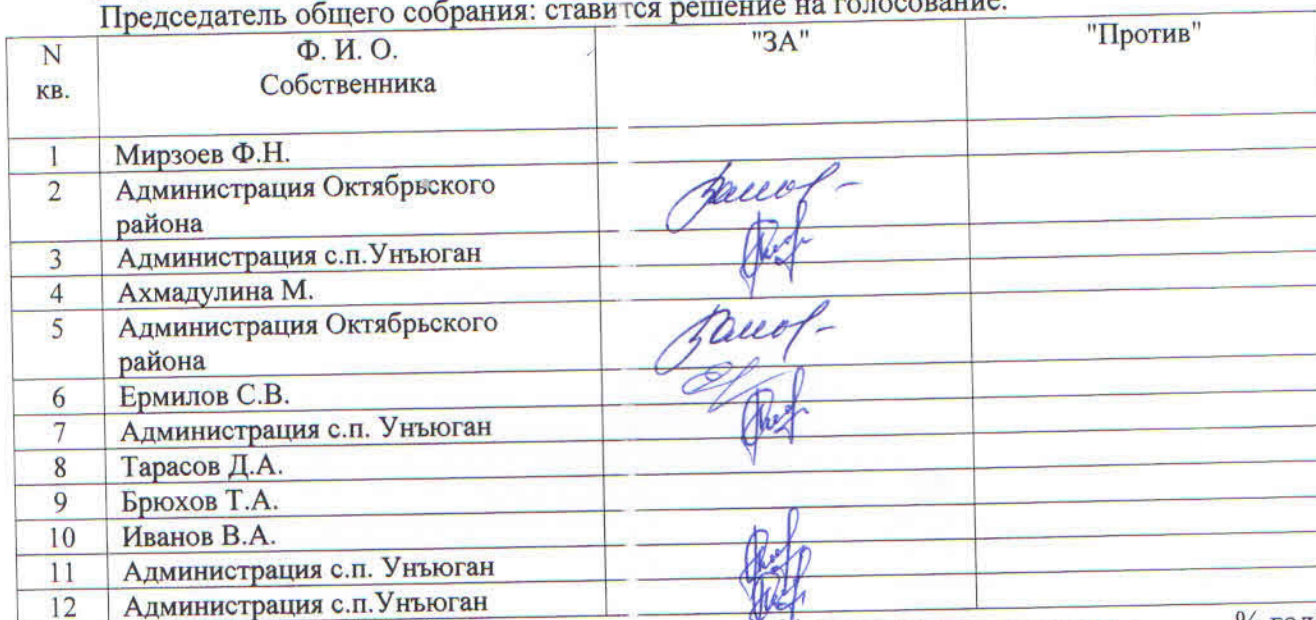 Председатель общего собрания: ставится решение на голосование.
N кв. Ф. И. О. Собственника "ЗА" "Против"
1 Мирзоев Ф.Н.
2 Администрация Октябрьского района
3 Администрация с.п.Унъюган
4 Ахмадулина М.
5 Администрация Октябрьского района
6 Ермилов С.В.
7 Администрация с.п. Унъюган
8 Тарасов Д.А.
9 Брюхов Т.А.
10 Иванов В.А.
11 Администрация с.п. Унъюган
12 Администрация с.п.Унъюган
%